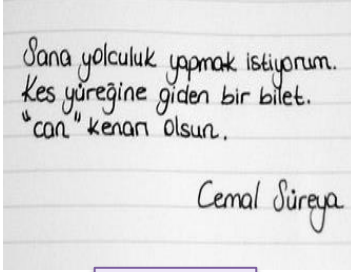 Sana yolculuk yapmak istiyorum.
Kes yüreğine giden bir bilet.
"can" kenarı olsun.
Cemal Süreya